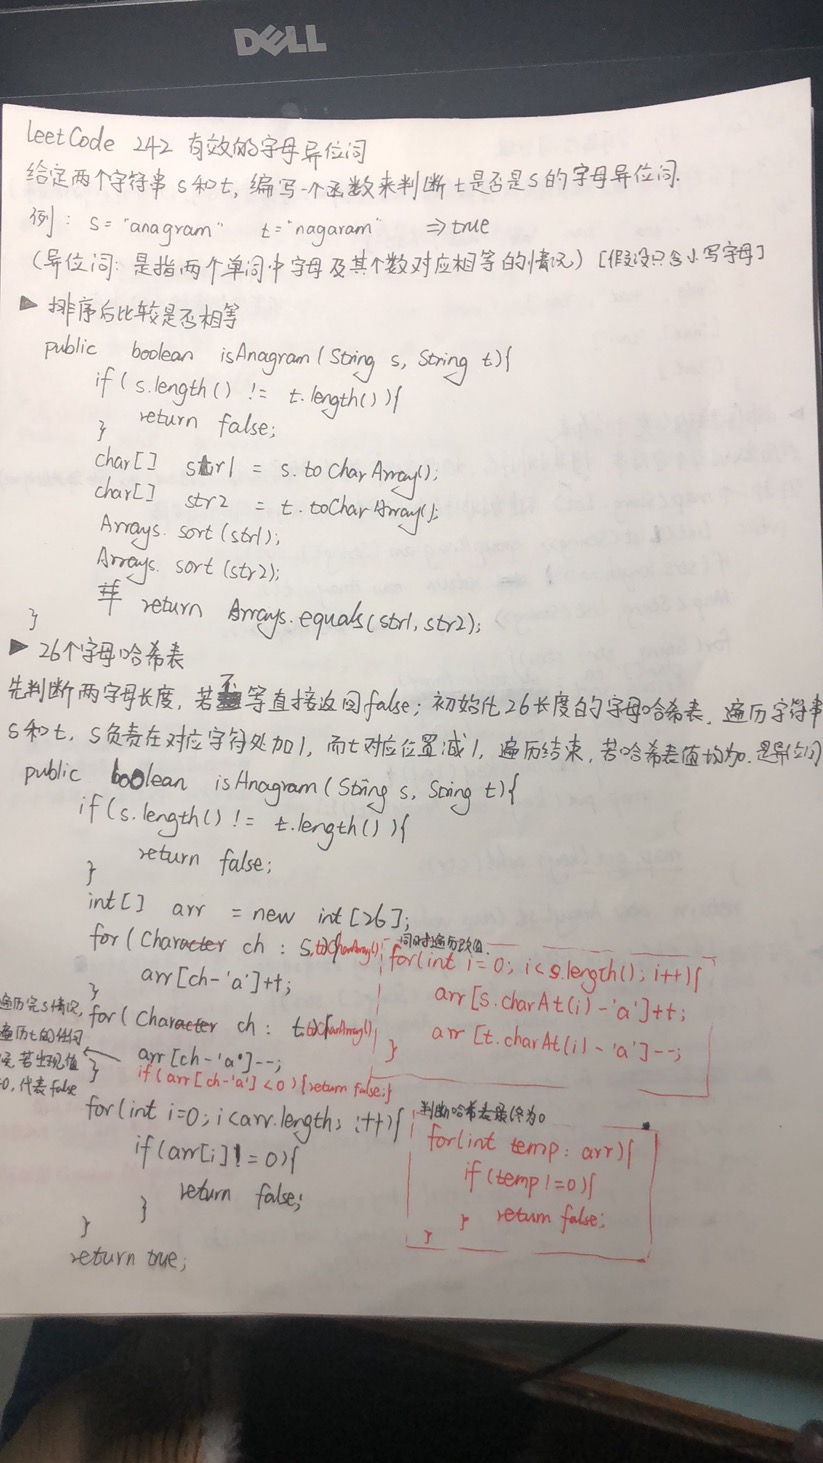 DELL
LeetCode 242 有效的字母异位词
给定两个字符串 s 和 t, 编写一个函数来判断 t 是否是 s 的字母异位词.
例: s = "anagram" t = "nagaram" ⇒ true
(异位词: 是指两个单词中字母及其个数对应相等的情况) [假设只含小写字母]
▶ 排序后比较是否相等
public boolean isAnagram(String s, String t){
if(s.length() != t.length()){
return false;
}
char[] str1 = s.toCharArray();
char[] str2 = t.toCharArray();
Arrays.sort(str1);
Arrays.sort(str2);
return Arrays.equals(str1, str2);
}
▶ 26个字母哈希表
先判断两字母长度, 若不等直接返回false; 初始化26长度的字母哈希表, 遍历字符串
s和t, s负责在对应字符处加1, 而t对应位置减1, 遍历结束, 若哈希表值均为0. 是异位词
public boolean isAnagram(String s, String t){
if(s.length() != t.length()){
return false;
}
int[] arr = new int[26];
for(Character ch : s.toCharArray()){
arr[ch-'a']++;
}
for(Character ch : t.toCharArray()){
arr[ch-'a']--;
if(arr[ch-'a']<0){return false;}
}
遍历完s情况,
遍历t的时
候, 若出现值
<0, 代表false
for(int i=0; i<arr.length; i++){
if(arr[i]!=0){
return false;
}
}
return true;
同时遍历改值.
for(int i=0; i<s.length(); i++){
arr[s.charAt(i)-'a']++;
arr[t.charAt(i)-'a']--;
}
判断哈希表最终为0
for(int temp: arr){
if(temp!=0){
return false;
}
}